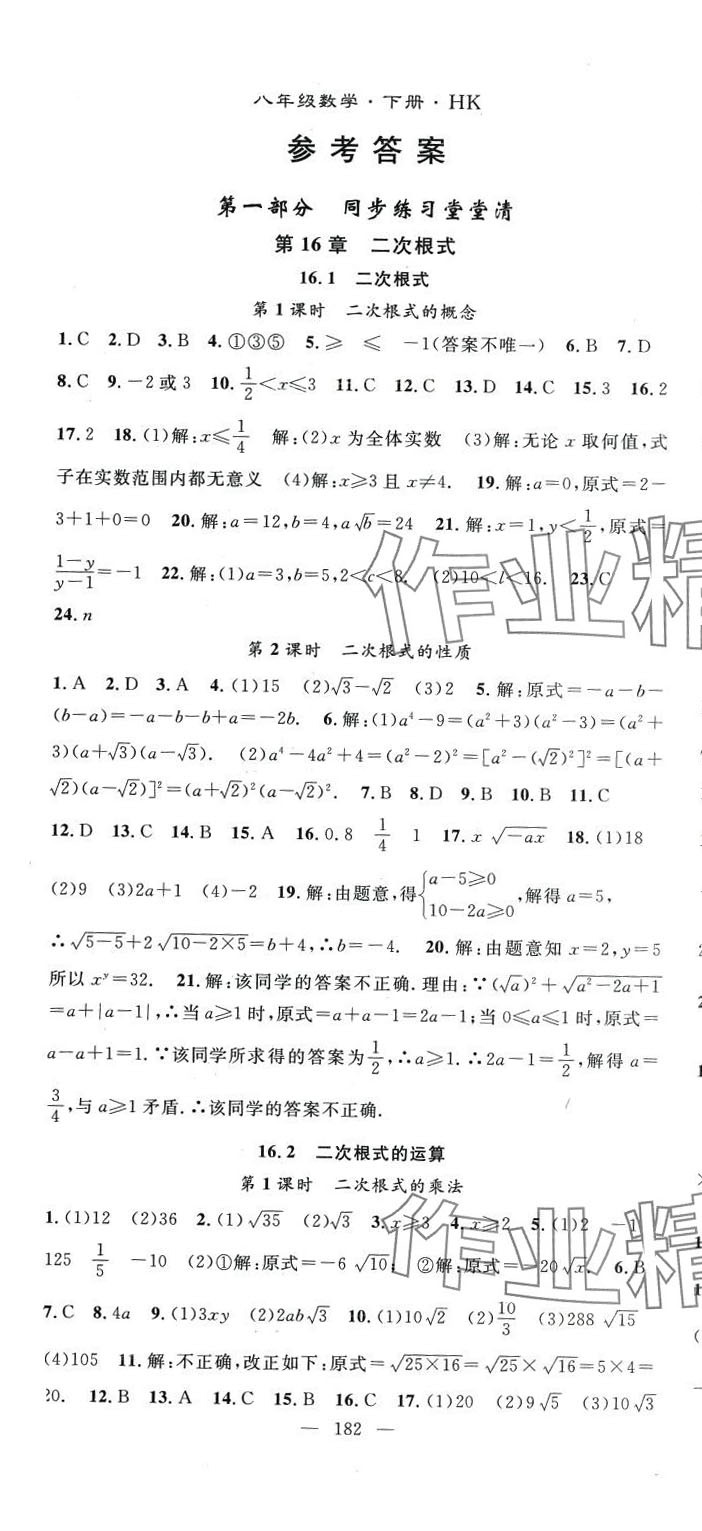 八年级数学·下册·HK
参考答案
第一部分 同步练习堂堂清
第16章 二次根式
16.1 二次根式
第1课时 二次根式的概念
1.C 2.D 3.B 4.①③⑤ 5.≥ ≤ -1(答案不唯一) 6.B 7.D
8.C 9.-2或3 10.1/2<x≤3 11.C 12.C 13.D 14.C 15.3 16.2
17.2 18.(1)解:x≤1/4 解:(2)x为全体实数 (3)解:无论x取何值,式
子在实数范围内都无意义 (4)解:x≥3且x≠4. 19.解:a=0,原式=2-
3+1+0=0 20.解:a=12,b=4,a√b=24 21.解:x=1,y<1/2,原式=
(1-y)/(y-1)=-1 22.解:(1)a=3,b=5,2<c<8. (2)10<l<16. 23.C
24.n
第2课时 二次根式的性质
1.A 2.D 3.A 4.(1)15 (2)√3-√2 (3)2 5.解:原式=-a-b-
(b-a)=-a-b-b+a=-2b. 6.解:(1)a⁴-9=(a²+3)(a²-3)=(a²+
3)(a+√3)(a-√3). (2)a⁴-4a²+4=(a²-2)²=[a²-(√2)²]²=[(a+
√2)(a-√2)]²=(a+√2)²(a-√2)². 7.B 8.D 9.B 10.B 11.C
12.D 13.C 14.B 15.A 16.0.8 1/4 1 17.x√(-ax) 18.(1)18
(2)9 (3)2a+1 (4)-2 19.解:由题意,得{a-5≥0 10-2a≥0,解得a=5,
∴√(5-5)+2√(10-2×5)=b+4,∴b=-4. 20.解:由题意知x=2,y=5
所以xʸ=32. 21.解:该同学的答案不正确.理由:∵(√a)²+√(a²-2a+1)
=a+|a-1|,∴当a≥1时,原式=a+a-1=2a-1;当0≤a≤1时,原式=
a-a+1=1.∵该同学所求得的答案为1/2,∴a≥1.∴2a-1=1/2,解得a=
3/4,与a≥1矛盾.∴该同学的答案不正确.
16.2 二次根式的运算
第1课时 二次根式的乘法
1.(1)12 (2)36 2.(1)√35 (2)√3 3.x≥3 4.x≥2 5.(1)2 -1
125 1/5 -10 (2)①解:原式=-6√10; ②解:原式=-20√x. 6.B
7.C 8.4a 9.(1)3xy (2)2ab√3 10.(1)10√2 (2)10/3 (3)288√15
(4)105 11.解:不正确,改正如下:原式=√(25×16)=√25×√16=5×4=
20. 12.B 13.A 14.C 15.B 16.C 17.(1)20 (2)9√5 (3)10√3
— 182 —
作业精
作业精